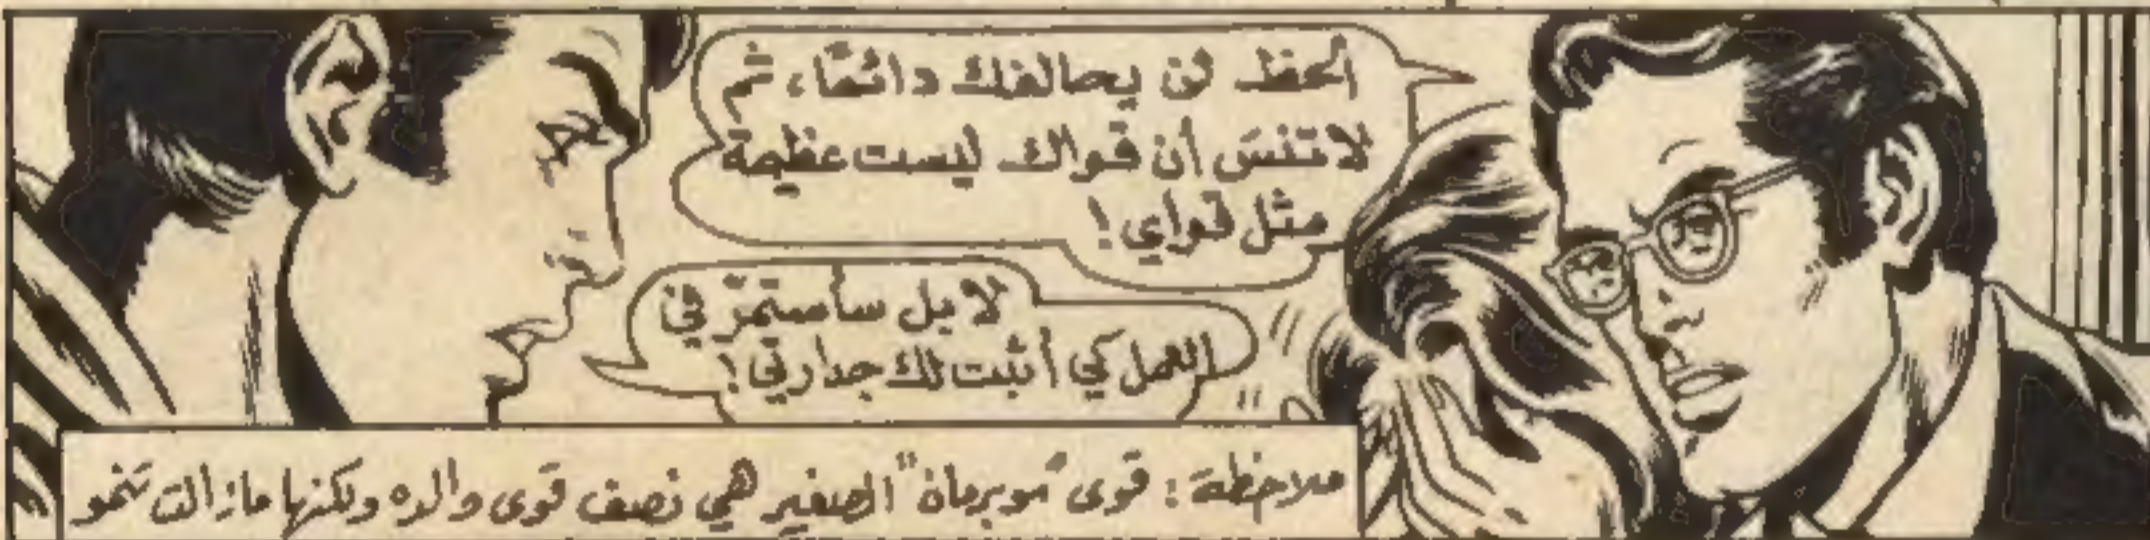 الحظ لن يحالفك دائمًا، ثم
لا تنسَ أن قواك ليست عظيمة
مثل قواي!
لا بل سأستمرّ في
العمل كي أثبت لك جدارتي!
ملاحظة: قوى "سوبرمان" الصغير هي نصف قوى والده ولكنها مازالت تنمو